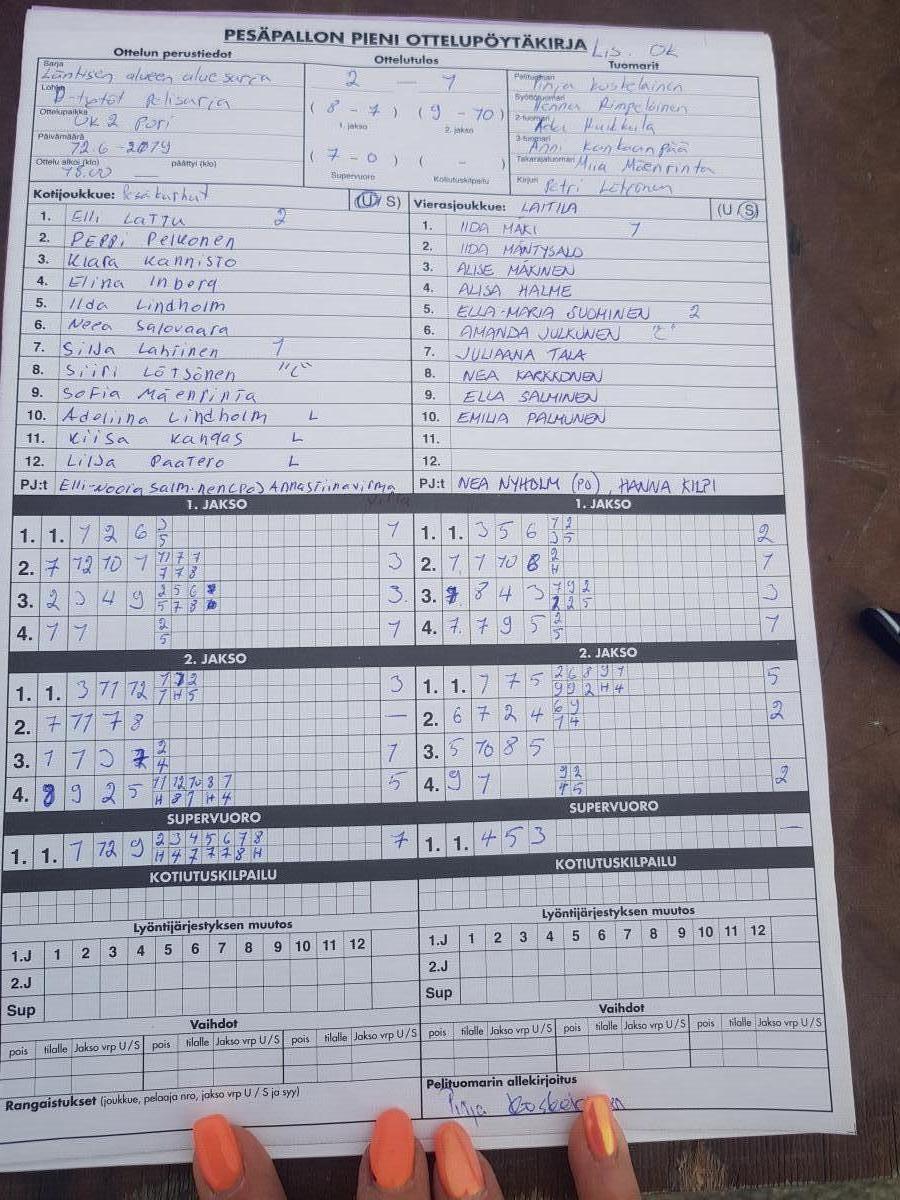 PESÄPALLON PIENI OTTELUPÖYTÄKIRJA Lis. Ok
Ottelun perustiedot
Ottelutulos
Tuomarit
Sarja Läntisen alueen aluesarja
Lohko D-tytöt Pelisarja
Ottelupaikka UK 2 Pori
Päivämäärä 12.6 -2019
Ottelu alkoi (klo) 18.00 päättyi (klo)
2 — 1
( 8 - 7 ) ( 9 - 10 )
1. jakso 2. jakso
( 7 - 0 ) ( - )
Supervuoro Kotiutuskilpailu
Pelituomari Pinja Koskelainen
Syöttötuomari Henna Rimpeläinen
2-tuomari
3-tuomari Anni Kankaanpää
Takarajatuomari Miia Mäenrinta
Kirjuri Petri Lötjönen
Kotijoukkue: Pesäkarhut (U/S)
1. Elli Lattu 2
2. Peppi Pelkonen
3. Klara Kannisto
4. Elina Inberg
5. Iida Lindholm
6. Neea Salovaara
7. Silja Lahtinen 1
8. Siiri Lötjönen "C"
9. Sofia Mäenrinta
10. Adeliina Lindholm L
11. Kiisa Kangas L
12. Lilja Paatero L
PJ:t Elli-Noora Salminen (PO) Annastiina Virma
Vierasjoukkue: LAITILA (U/S)
1. IIDA MÄKI 1
2. IIDA MÄNTYSALO
3. ALISE MÄKINEN
4. ALISA HALME
5. ELLA-MARIA SUOMINEN 2
6. AMANDA JULKUNEN "C"
7. JULIAANA TALA
8. NEA KARKKONEN
9. ELLA SALMINEN
10. EMILIA PALMUNEN
11.
12.
PJ:t NEA NYHOLM (PO), HANNA KILPI
1. JAKSO
1. 1. 1 2 6 3 1
5
2. 7 12 10 1 11 7 7 3
7 7 8
3. 2 3 4 9 2 5 6 3
5 7 8
4. 7 7 2 1
5
2. JAKSO
1. 1. 3 11 12 1 2 3
7 H 5
2. 7 11 7 8 —
3. 1 7 3 7 2 1
4
4. 8 9 2 5 11 12 10 8 7 5
H 8 7 H 4
SUPERVUORO
1. 1. 7 12 9 2 3 4 5 6 7 8 7
H 4 7 7 7 8 H
KOTIUTUSKILPAILU
Lyöntijärjestyksen muutos
1.J 1 2 3 4 5 6 7 8 9 10 11 12
2.J
Sup
Vaihdot
pois tilalle Jakso vrp U/S pois tilalle Jakso vrp U/S pois tilalle Jakso vrp U/S
Rangaistukset (joukkue, pelaaja nro, jakso vrp U / S ja syy)
1. JAKSO
1. 1. 3 5 6 1 2 2
3 5
2. 7 7 10 8 2 1
H
3. 8 4 3 7 9 2 3
2 2 5
4. 7 7 9 5 2 1
5
2. JAKSO
1. 1. 7 7 5 2 6 8 9 1 5
9 9 2 H 4
2. 6 7 2 4 6 9 2
7 4
3. 5 10 8 5
4. 9 7 9 2 2
4 5
SUPERVUORO
1. 1. 4 5 3 —
KOTIUTUSKILPAILU
Lyöntijärjestyksen muutos
1.J 1 2 3 4 5 6 7 8 9 10 11 12
2.J
Sup
Vaihdot
pois tilalle Jakso vrp U/S pois tilalle Jakso vrp U/S pois tilalle Jakso vrp U/S
Pelituomarin allekirjoitus
Pinja Koskelainen